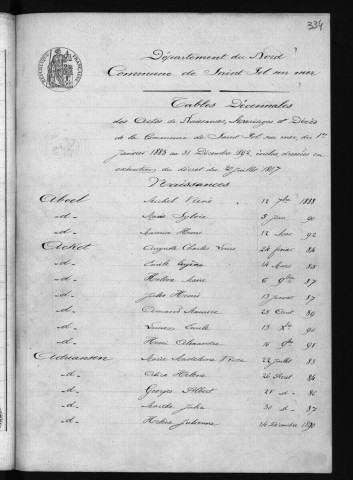 334
Département du Nord
Commune de Saint Pol sur mer
Tables Décennales
des Actes de Naissances, Mariages et Décès
de la Commune de Saint Pol sur mer, du 1er
janvier 1883 au 31 Décembre 1892 dressées en
exécution du décret du 20 juillet 1807
Naissances
Abeel Michel René 12 7bre 1888
-d- Marie Sylvie 3 juin 90
-d- Maurice Henri 12 Mars 92
Achet Auguste Charles Louis 24 février 84
-d- Emile Eugène 14 Mars 85
-d- Marie 6 9bre 87
-d- Jules Henri 13 janvier 87
-d- Armand Maurice 25 Août 89
-d- Emile 13 Xbre 90
-d- Henri Alexandre 16 9bre 91
Adriansen Marie Madeleine 22 juillet 83
-d- Hélène 20 Août 84
-d- Georges Albert 21 -d- 86
-d- Marthe Julia 30 -d- 87
-d- Julienne 14 Décembre 1890